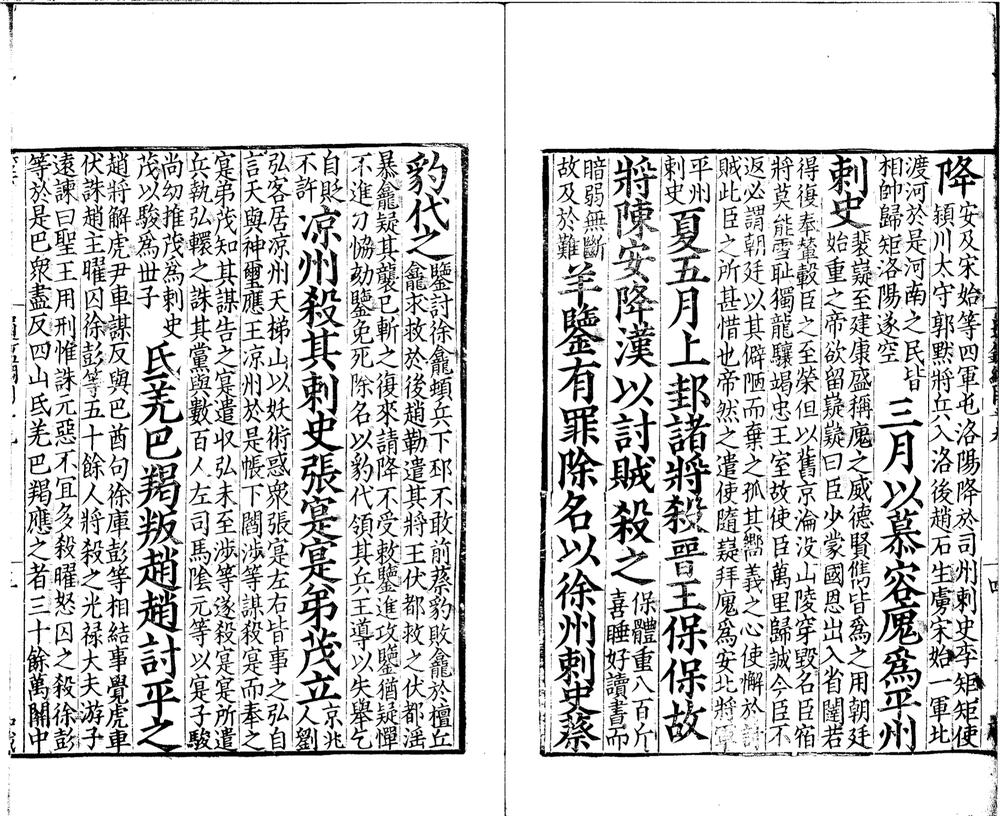 降
安及宋始等四軍屯洛陽降於司州刺史李矩矩使
潁川太守郭默將兵入洛後趙石生虜宋始一軍北
渡河於是河南之民皆
相帥歸矩洛陽遂空
三月以慕容廆爲平州
刺史
裴嶷至建康盛稱廆之威德賢儁皆爲之用朝廷
始重之帝欲留嶷嶷曰臣少蒙國恩出入省闥若
得復奉輦轂臣之至榮但以舊京淪没山陵穿毀名臣宿
將莫能雪耻獨龍驤竭忠王室故使臣萬里歸誠今臣不
返必謂朝廷以其僻陋而棄之孤其嚮義之心使懈於討
賊此臣之所甚惜也帝然之遣使隨嶷拜廆爲安北將軍
平州
刺史
夏五月上邽諸將殺晉王保保故
將陳安降漢以討賊殺之
保體重八百斤
喜睡好讀書而
暗弱無斷
故及於難
羊鑒有罪除名以徐州刺史蔡
豹代之
鑒討徐龕頓兵下邳不敢前蔡豹敗龕於檀丘
龕求救於後趙勒遣其將王伏都救之伏都淫
暴龕疑其襲已斬之復來請降不受敕鑒進攻鑒猶疑憚
不進刁恊劾鑒免死除名以豹代領其兵王導以失舉乞
自貶
不許
凉州殺其刺史張寔寔弟茂立
京兆
人劉
弘客居凉州天梯山以妖術惑衆張寔左右皆事之弘自
言天與神璽應王凉州於是帳下閻涉等謀殺寔而奉之
寔弟茂知其謀告之寔遣收弘未至涉等遂殺寔寔所遣
兵執弘轘之誅其黨與數百人左司馬陰元等以寔子駿
尚幼推茂爲刺史
茂以駿爲世子
氐羌巴羯叛趙趙討平之
趙將解虎尹車謀反與巴酋句徐庫彭等相結事覺虎車
伏誅趙主曜囚徐彭等五十餘人將殺之光禄大夫游子
遠諫曰聖王用刑惟誅元惡不宜多殺曜怒囚之殺徐彭
等於是巴衆盡反四山氐羌巴羯應之者三十餘萬關中